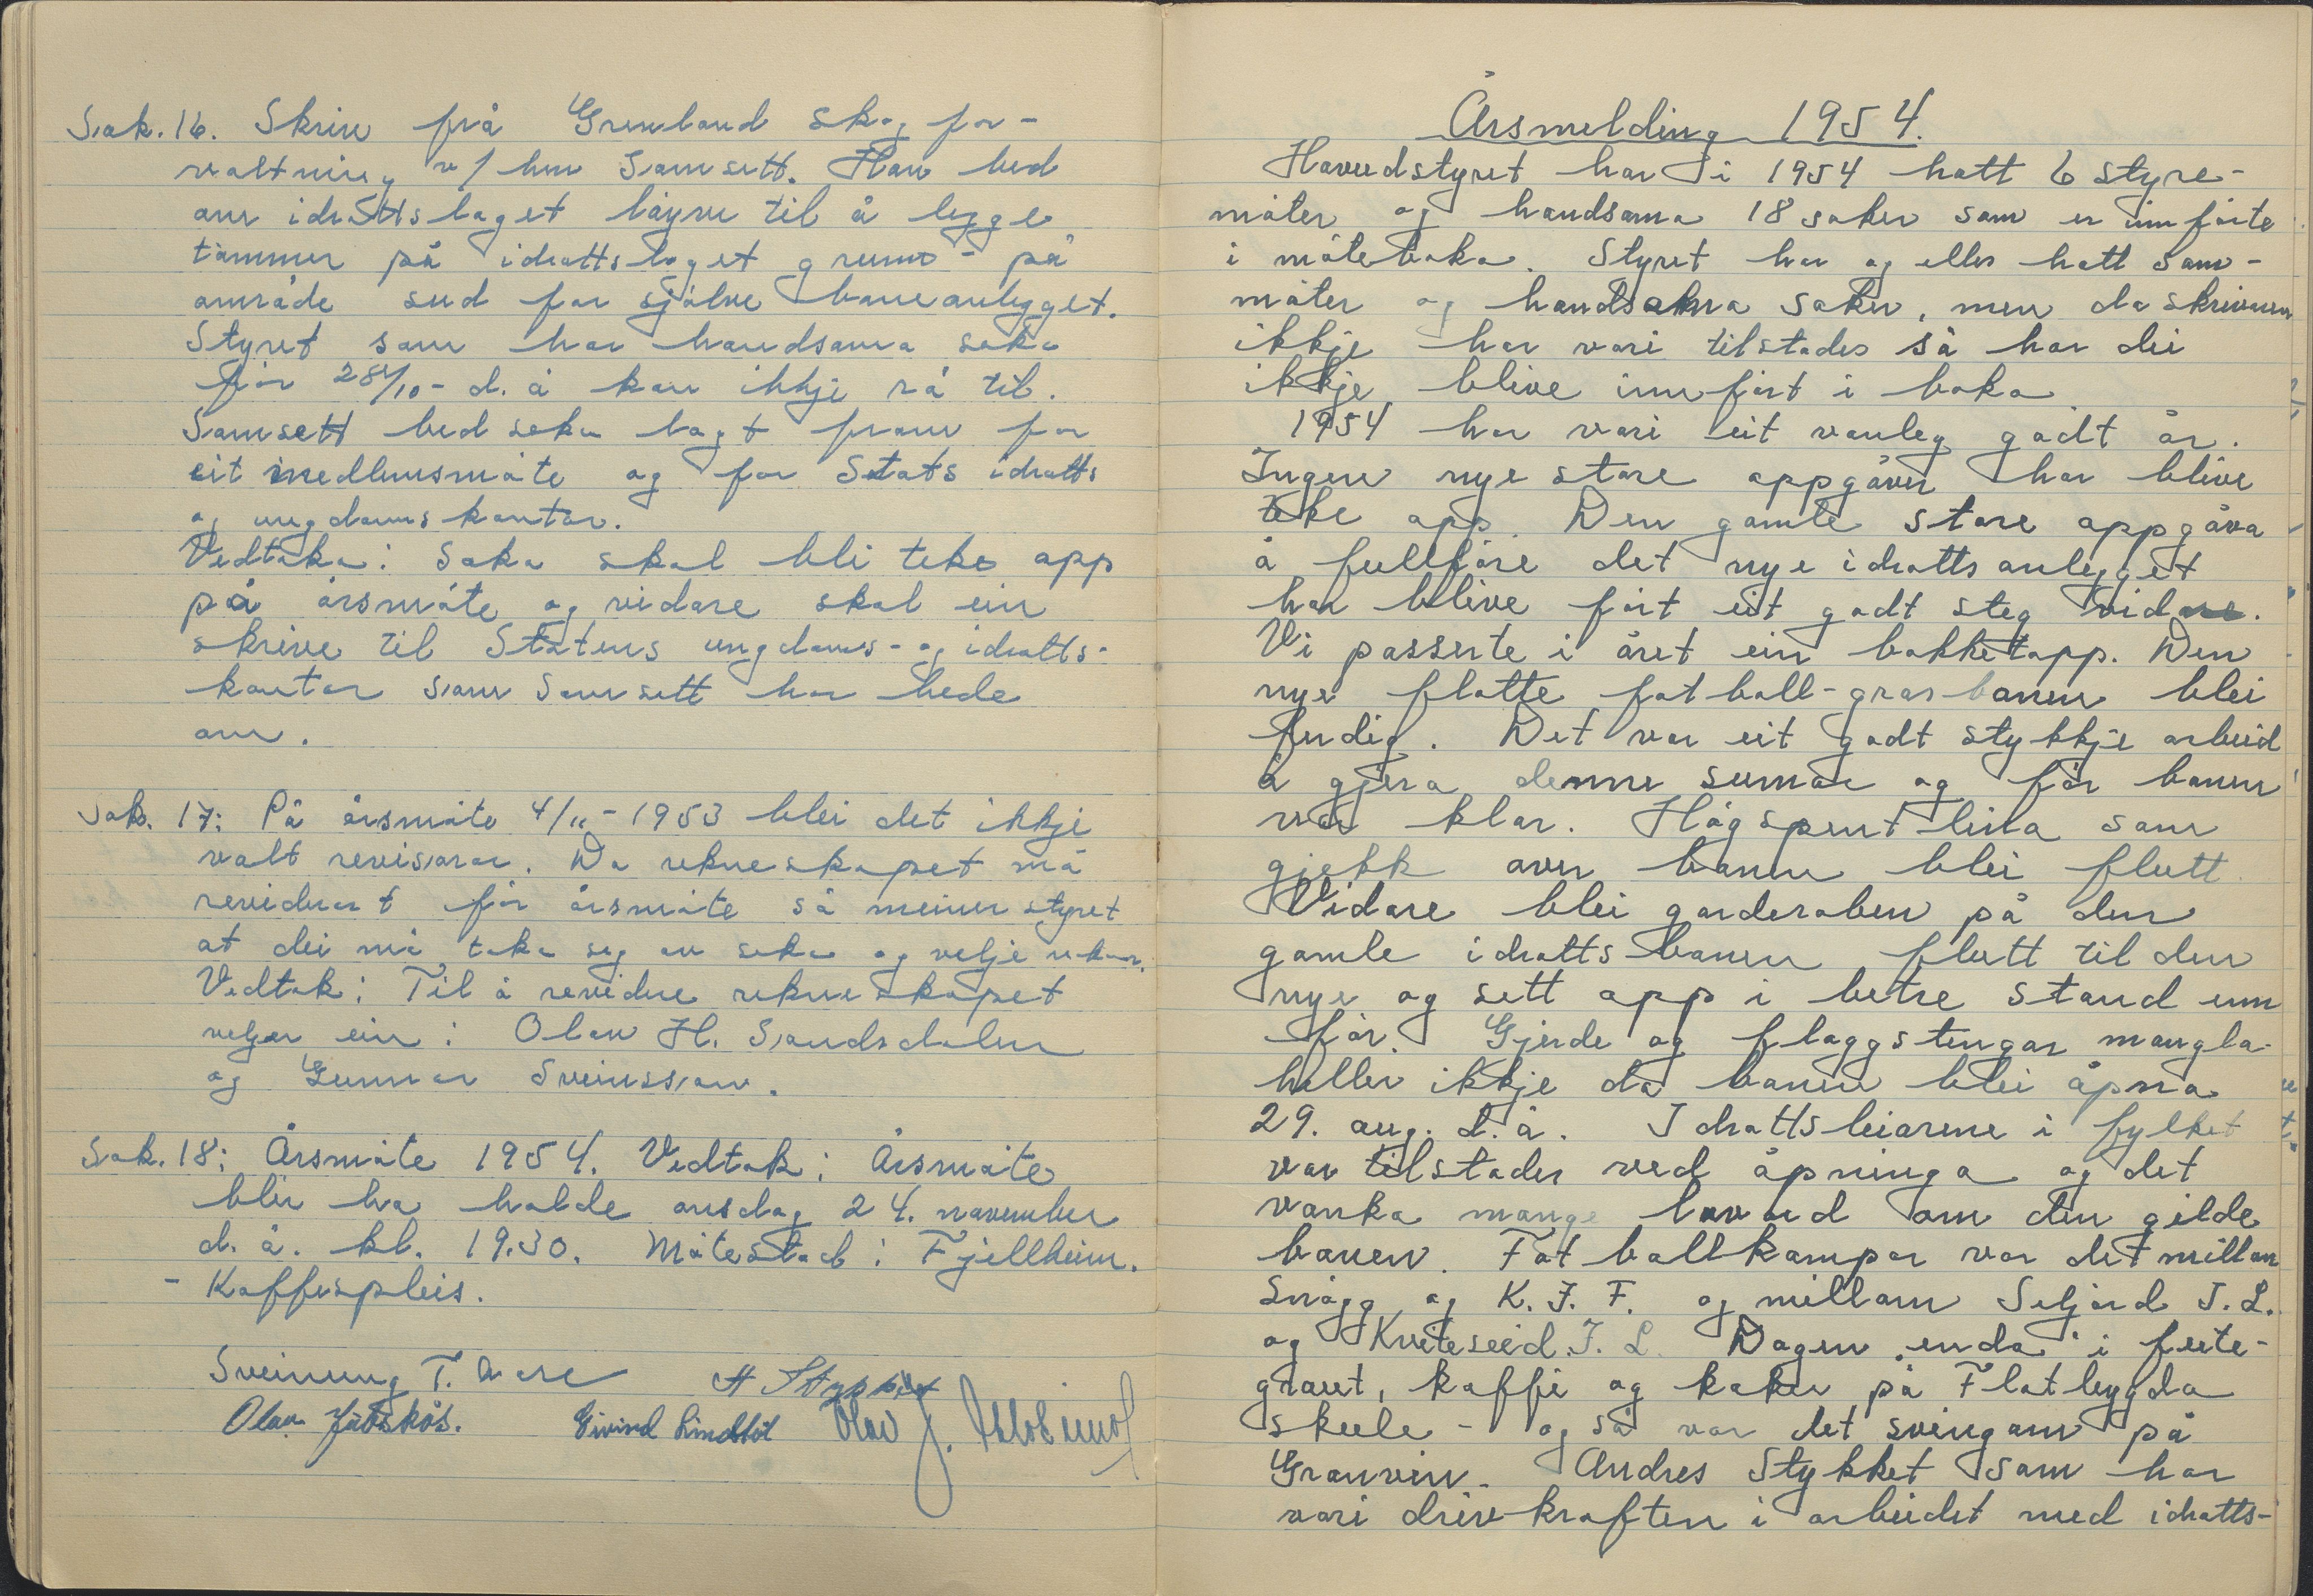 Sak. 16. Skriv frå Grenland skogfor-
valtning v/ hm Samsett. Han bed
om idrottslaget løyve til å legge
tømmer på idrottslaget grunn - på
område sud for sjølve baneanlegget.
Styret som har handsama saka
før 28/10 - d.å kan ikkje rå til.
Samsett bed saka lagt fram for
eit medlemsmøte og for Stats idrotts
og ungdomskontor.
Vedtaka: Saka skal bli teke opp
på årsmøte og vidare skal ein
skrive til Statens ungdoms- og idrotts-
kontor som Samsett har bede
om.
Sak. 17: På årsmøte 4/11 - 1953 blei det ikkje
valt revisorar. Da rekneskapet må
reviderast før årsmøte så meiner styret
at dei må taka seg av saka og velje
Vedtak: Til å revidere rekneskapet
velger ein: Olav H. Sandsdalen
og Gunnar Sveinsson.
Sak. 18: Årsmøte 1954. Vedtak: Årsmøte
blir ha halde onsdag 24. november
d. å. kl. 19.30. Møtestad: Fjellheim.
- Kaffespleis.
Sveinung T. Aase A Stykket
Olav Jøtskås. Eivind Lindtöl Olav J.
Årsmelding 1954.
Hovudstyret har i 1954 hatt 6 styre-
møter og handsama 18 saker som er innførte
i møteboka. Styret har og elles hatt sam-
møter og handsama saker, men da skrivaren
ikkje har vori tilstades så har dei
ikkje blive innført i boka
1954 har vori eit vanleg godt år.
Ingen nye store oppgåver har blive
teke opp. Den gamle store oppgåva
å fullføre det nye idrottsanlegget
har blive ført eit godt steg vidare.
Vi passerte i året ein bakketopp. Den
nye flotte fotball-grasbanen blei
ferdig. Det var eit godt stykkje arbeid
å gjera denne sumar og før banen
var klar. Høgspentlina som
gjekk over banen blei flutt.
Vidare blei garderoben på den
gamle idrottsbanen flutt til den
nye og sett opp i betre stand enn
før. Gjerde og flaggstengar mangla
heller ikkje da banen blei åpna
29. aug. d.å. Idrottsleiarene i fylket
var tilstades ved åpninga og det
vanka mange lovord om den gilde
banen. Fotballkampar var det millom
Snøgg og K. I. F. og millom Seljord I. L.
og Kviteseid I. L. Dagen enda i feite-
graut, kaffi og kaker på Flatbygda
skule - og så var det svingom på
Granvin. Andres Stykket som har
vori drivkraften i arbeidet med idrotts-